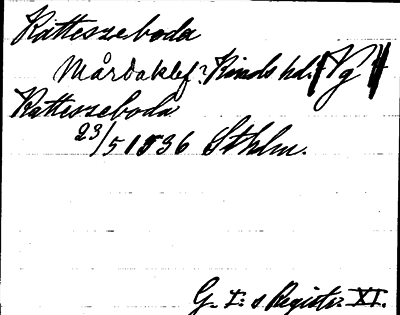 Katteszeboda
Mårdaklef? Kinds hd. (Vg)
Katteszeboda
23/5 1536 Sthlm.
G. I: s Registr. XI.